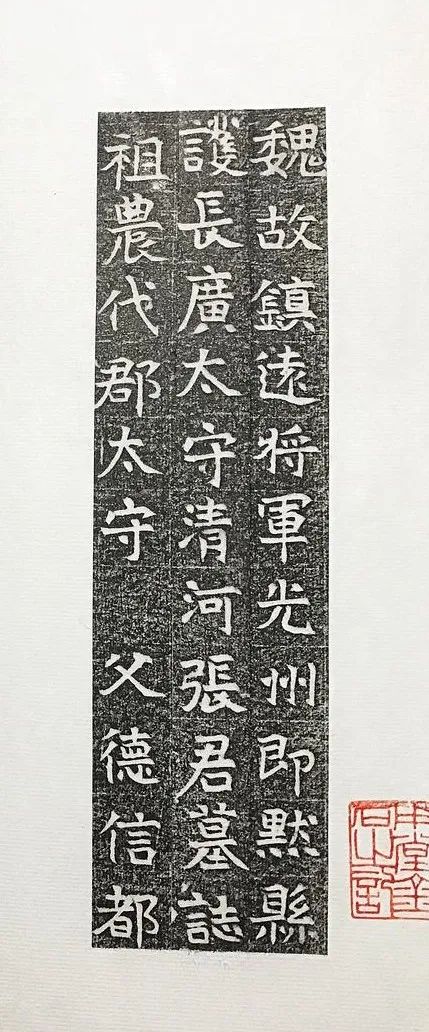 魏故鎮遠将軍光州即默縣
護長廣太守清河張君墓誌
祖農代郡太守 父德信都